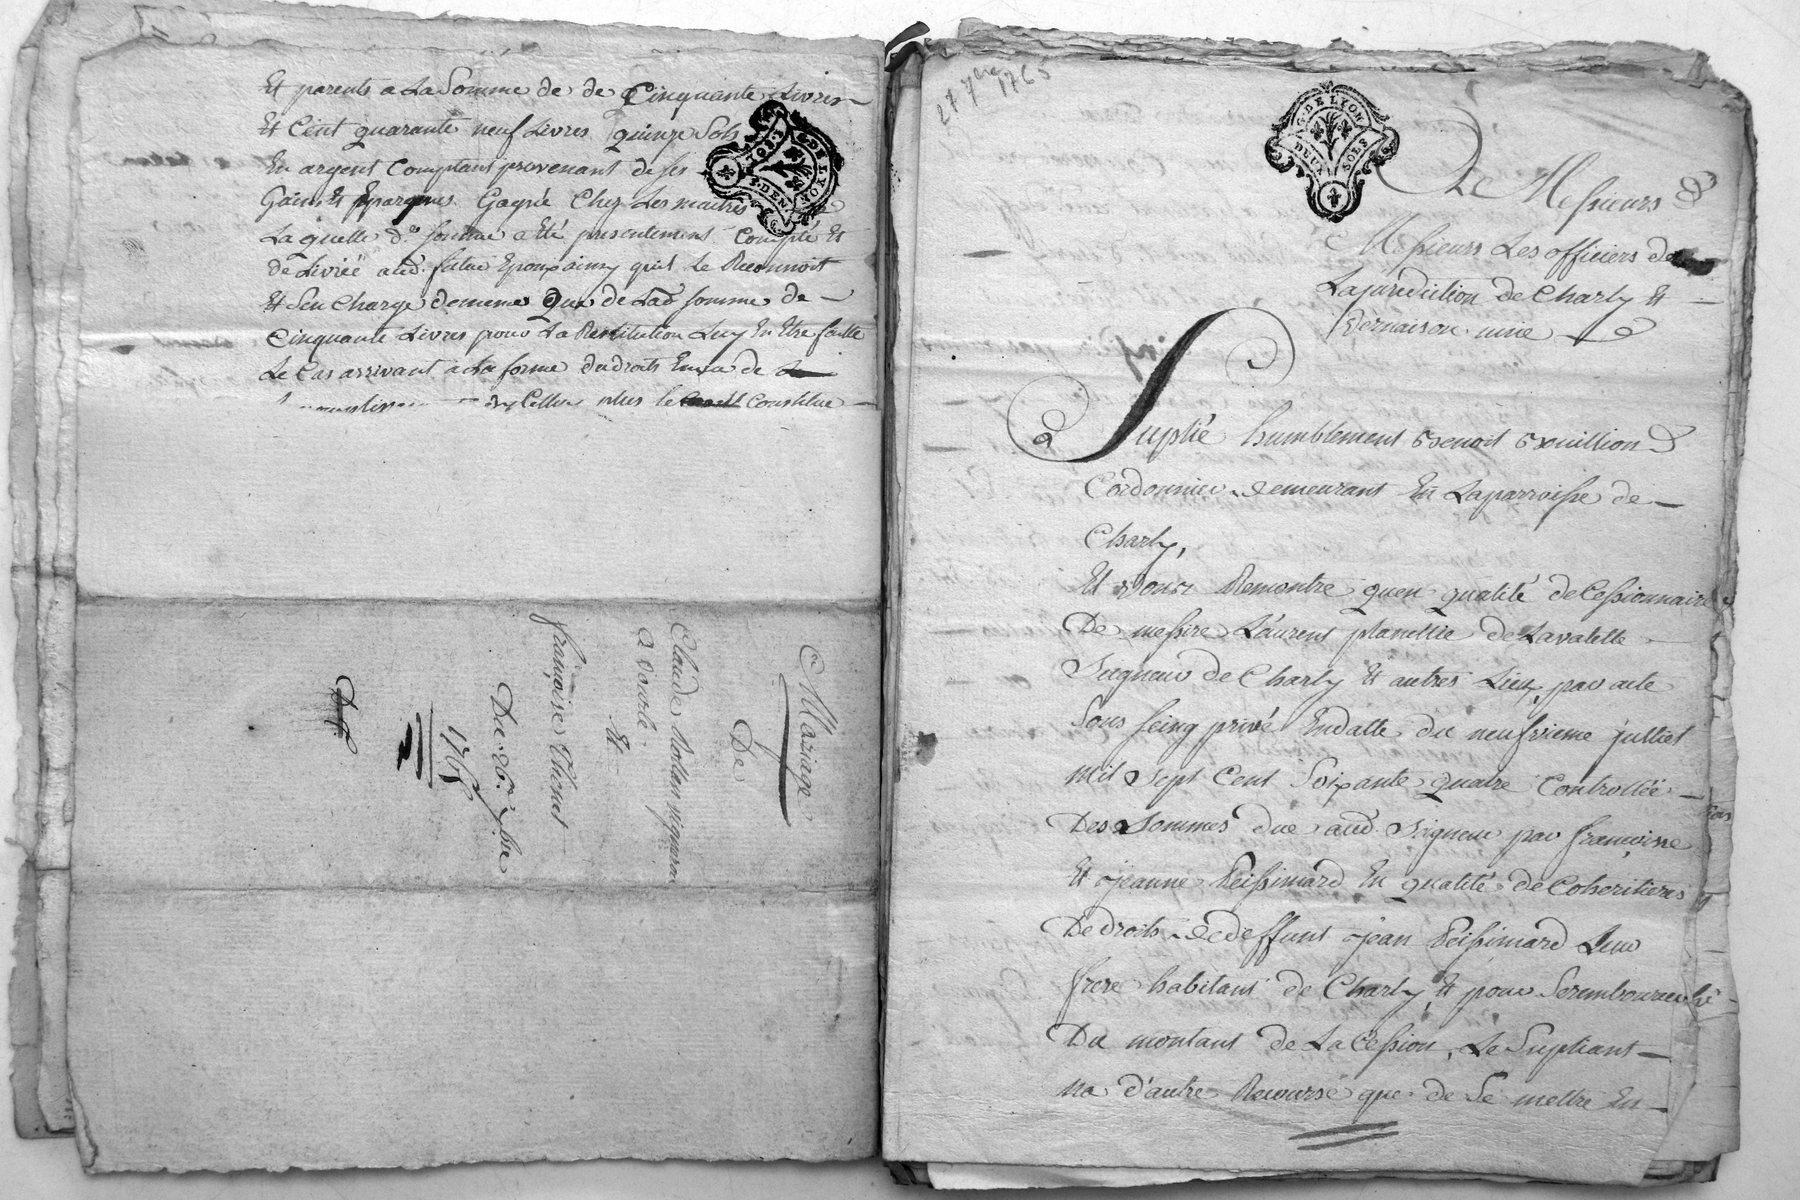 Et parents a La Somme de de Cinquante Livres
Et Cent quarante neuf Livres quinze Sols
En argent Comptant provenant de ses
Gains Et Eparques Gagnée Chez Les maitres
La quelle de. somme a Eté presentement Compté Et
de Livrée aud. futur Epoux ainsy quil Le Reconnoit
Et Sen Charge dememe Que de Lad somme de
Cinquante Livres pour La Restitution Luy En Etre faitte
Le Cas arrivant a La forme du droits
plus le Constitue
G. DE LYON
Mariage
De
Claude vigneron
a vourle
Et
françoise Thenet
Du 26. 7bre
1765
27 7bre 1765
G. DE LYON
DEUX SOLS
A Messieurs
Messieurs Les officiers de
La juridiction de Charly Et
Vernaison unie
Suplie humblement Benoit Bouillion
Cordonnier Demeurant En La parroisse de
Charly,
Et vous Remontre quen qualité de Cessionnaire
De messire Laurent planellie de Lavalette
Seigneur de Charly Et autres Lieux, par acte
Sous seing privé En datte du neufvieme julliet
mil Sept Cent Soixante quatre Controllée
Des Sommes due aud. Seigneur par francoise
Et jeanne Peissimard En qualité de Coheritieres
De droits de deffunt jean Peissimard Leur
frere habitant de Charly, Et pour Se rembourcer
Du montant de La Cession, Le Supliant
na d'autre Recourse que de Se mettre En